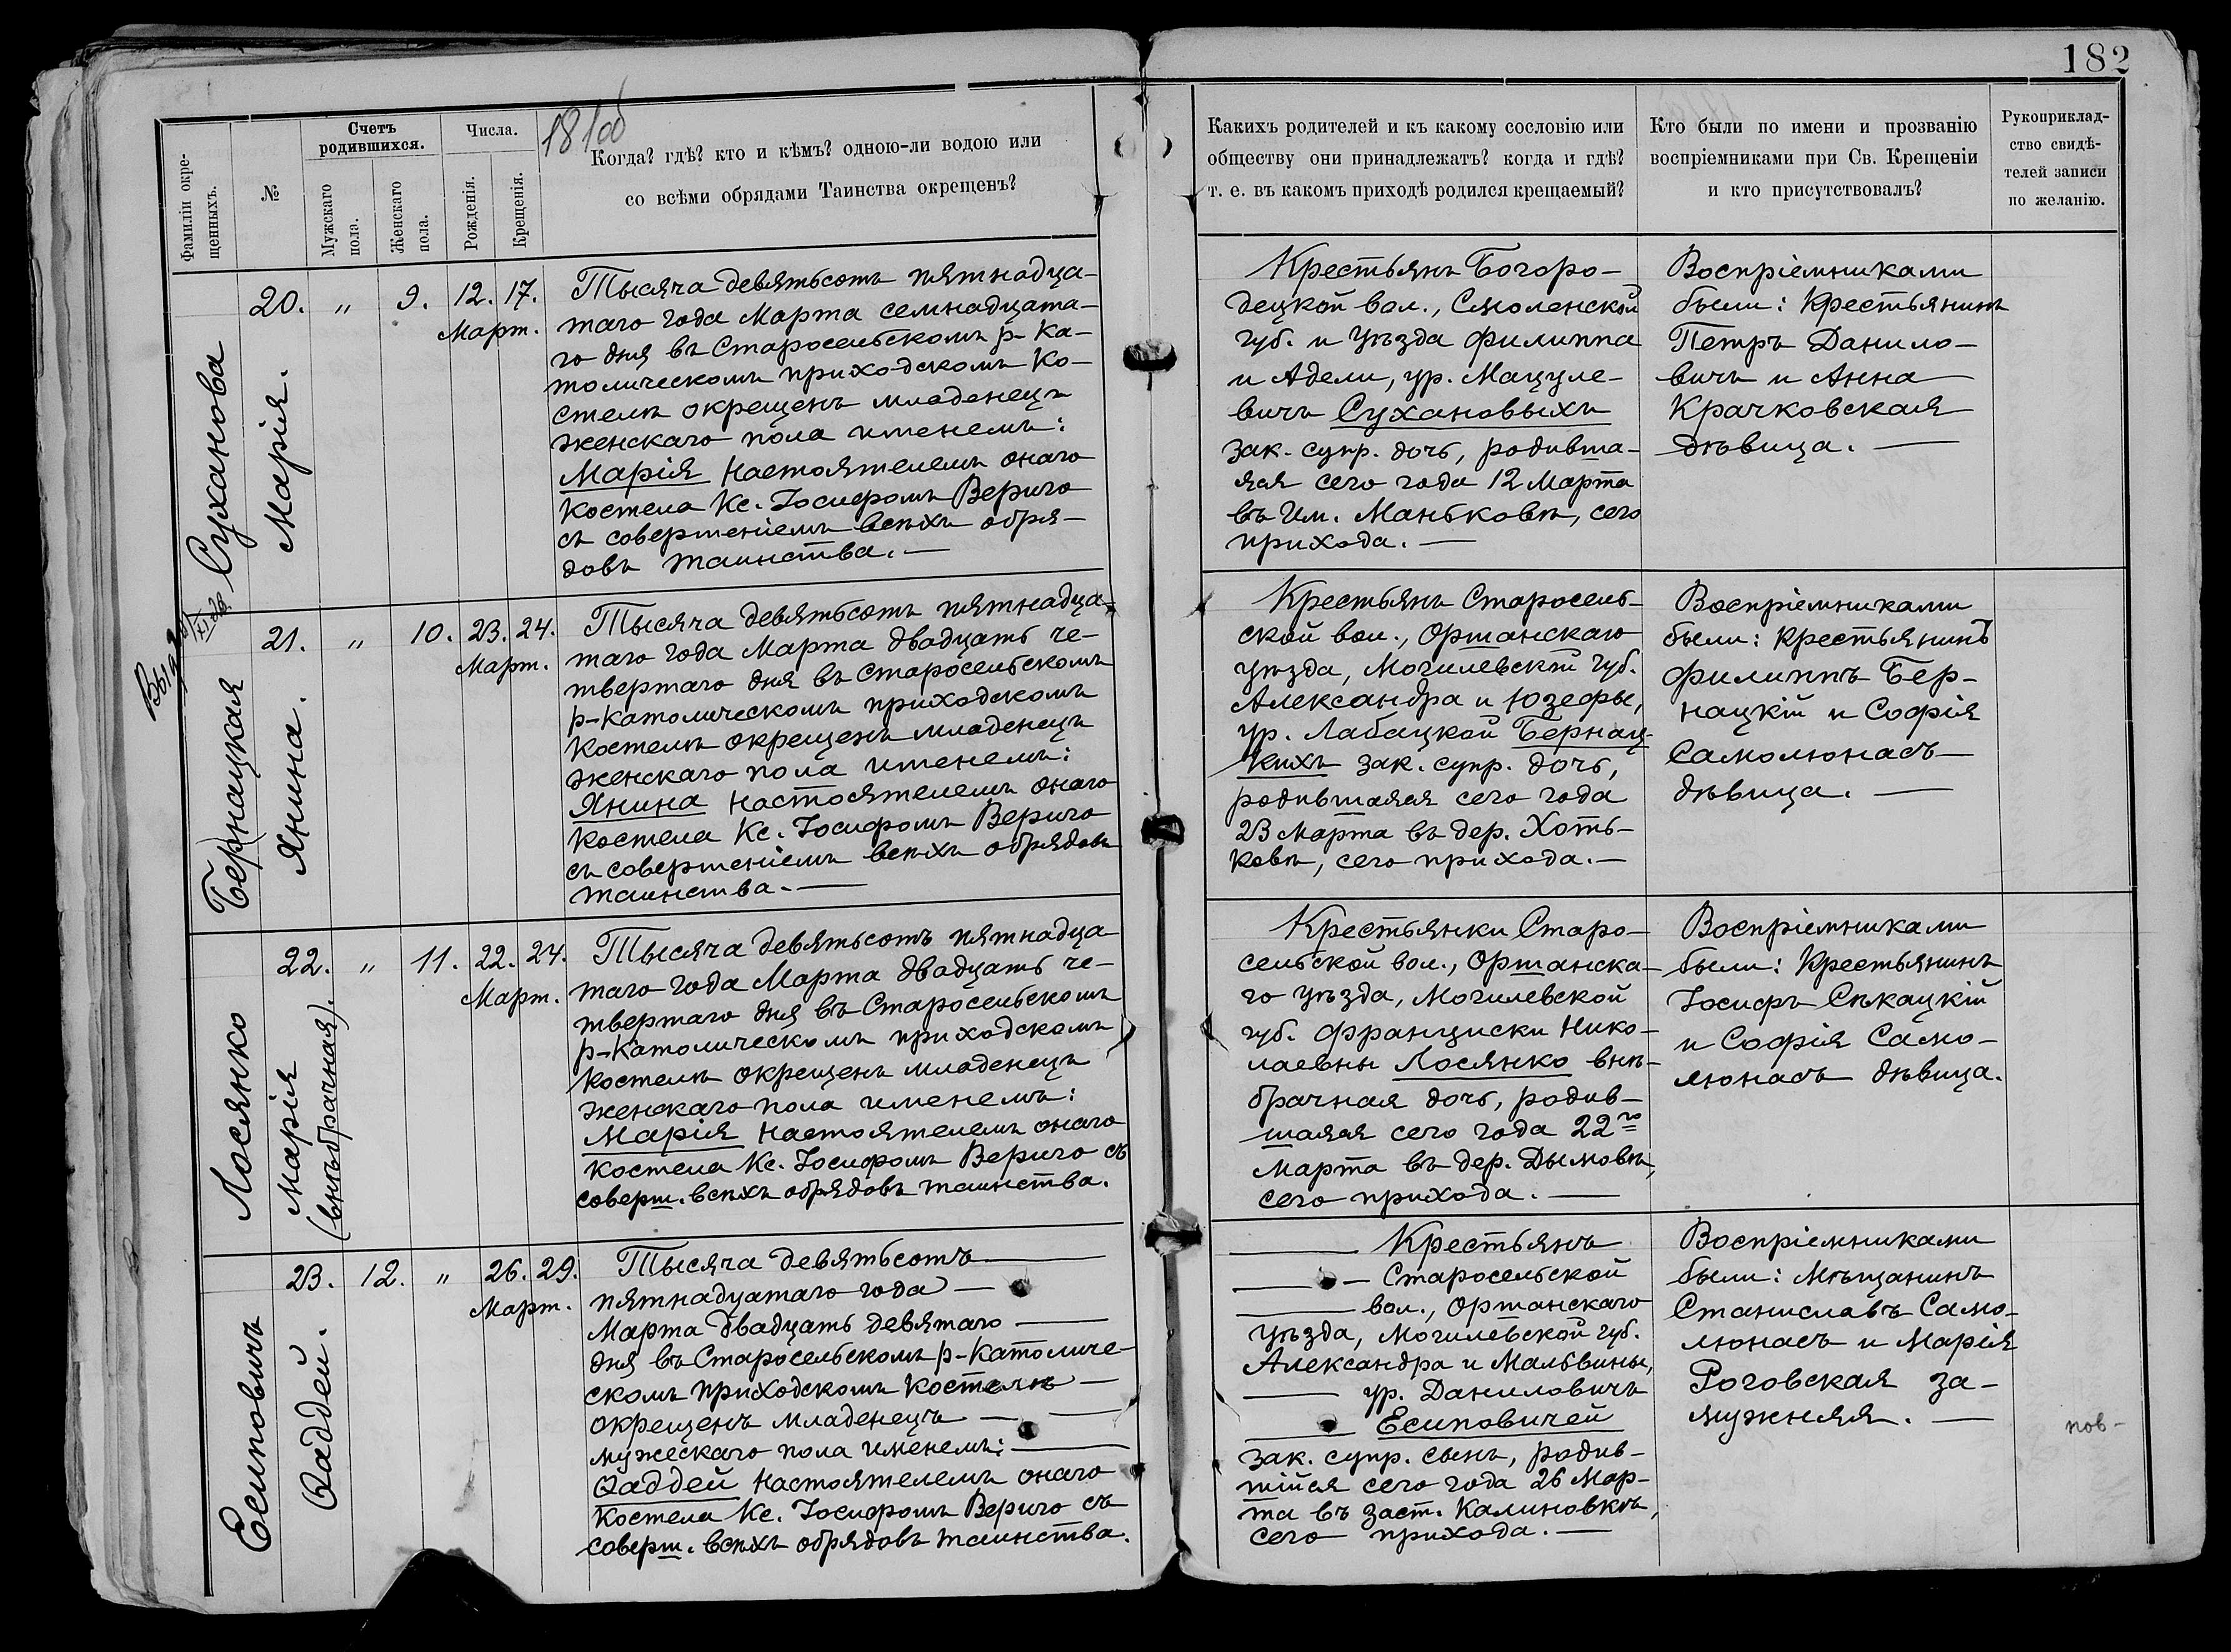 182
181об
Фамиліи окре-
щенныхъ.
№
Счетъ
родившихся.
Мужскаго
пола.
Женскаго
пола.
Числа.
Рожденія.
Крещенія.
Когда? гдѣ? кто и кѣмъ? одною-ли водою или
со всѣми обрядами Таинства окрещенъ?
Какихъ родителей и къ какому сословію или
обществу они принадлежатъ? когда и гдѣ?
т. е. въ какомъ приходѣ родился крещаемый?
Кто были по имени и прозванію
воспріемниками при Св. Крещеніи
и кто присутствовалъ?
Рукоприклад-
ство свидѣ-
телей записи
по желанію.
Суханова
Марія.
20. " 9. 12. 17.
Март.
Тысяча девятьсотъ пятнадца-
таго года Марта семнадцата-
го дня въ Старосельскомъ р-ка-
толическомъ приходскомъ ко-
стелѣ окрещенъ младенецъ
женскаго пола именемъ:
Марія настоятелемъ онаго
костела Кс. Іосифомъ Верига
съ совершеніемъ всѣхъ обря-
довъ таинства. —
Крестьянъ Богоро-
децкой вол., Смоленской
губ. и уѣзда Филиппа
и Адели, ур. Мацуле-
вичъ Сухановыхъ
зак. супр. дочь, родивша-
яся сего года 12 Марта
въ им. Маньковѣ, сего
прихода. —
Воспріемниками
были: крестьянинъ
Петръ Данило-
вичъ и Анна
Крачковская
дѣвица. —
Бернацкая
Янина.
21. " 10. 23. 24.
Март.
Тысяча девятьсотъ пятнадца-
таго года Марта двадцать че-
твертаго дня въ Старосельскомъ
р-католическомъ приходскомъ
костелѣ окрещенъ младенецъ
женскаго пола именемъ:
Янина настоятелемъ онаго
костела Кс. Іосифомъ Верига
съ совершеніемъ всѣхъ обрядовъ
таинства. —
Крестьянъ Старосель-
ской вол., Оршанскаго
уѣзда, Могилевской губ.
Александра и Юзефы,
ур. Лабацкой Бернац-
кихъ зак. супр. дочь,
родившаяся сего года
23 Марта въ дер. Хоть-
ковѣ, сего прихода. —
Воспріемниками
были: крестьянинъ
Филиппъ Бер-
нацкій и Софія
Самолюнасъ
дѣвица. —
Лосянко
Марія
(внѣбрачная).
22. " 11. 22. 24.
Март.
Тысяча девятьсотъ пятнадца
таго года Марта двадцать че-
твертаго дня въ Старосельскомъ
р-католическомъ приходскомъ
костелѣ окрещенъ младенецъ
женскаго пола именемъ:
Марія настоятелемъ онаго
костела Кс. Іосифомъ Верига съ
соверш. всѣхъ обрядовъ таинства.
Крестьянки Старо-
сельской вол., Оршанска-
го уѣзда, Могилевской
губ. Франциски Нико-
лаевны Лосянко внѣ-
брачная дочь, родив-
шаяся сего года 22го
Марта въ дер. Дымовѣ,
сего прихода. —
Воспріемниками
были: Крестьянинъ
Іосифъ Сѣкацкій
и Софія Само-
люнасъ дѣвица.
Есиповичъ
Ѳаддей.
23. 12. " 26. 29.
Март.
Тысяча девятьсотъ —
пятнадцатаго года —
Марта двадцать девятаго —
дня въ Старосельскомъ р-католиче-
скомъ приходскомъ костелѣ —
окрещенъ младенецъ —
мужескаго пола именемъ: —
Ѳаддей настоятелемъ онаго
костела Кс. Іосифомъ Верига съ
соверш. всѣхъ обрядовъ таинства.
— Крестьянъ
— Старосельской
— вол., Оршанскаго
уѣзда, Могилевской губ.
Александра и Мальвины,
— ур. Даниловичъ
— Есиповичей
зак. супр. сынъ, родив-
шійся сего года 26 Мар-
та въ заст. Калиновкѣ,
сего прихода. —
Воспріемниками
были: Мѣщанинъ
Станиславъ Само-
люнасъ и Марія
Роговская за-
мужняя. —
пов-